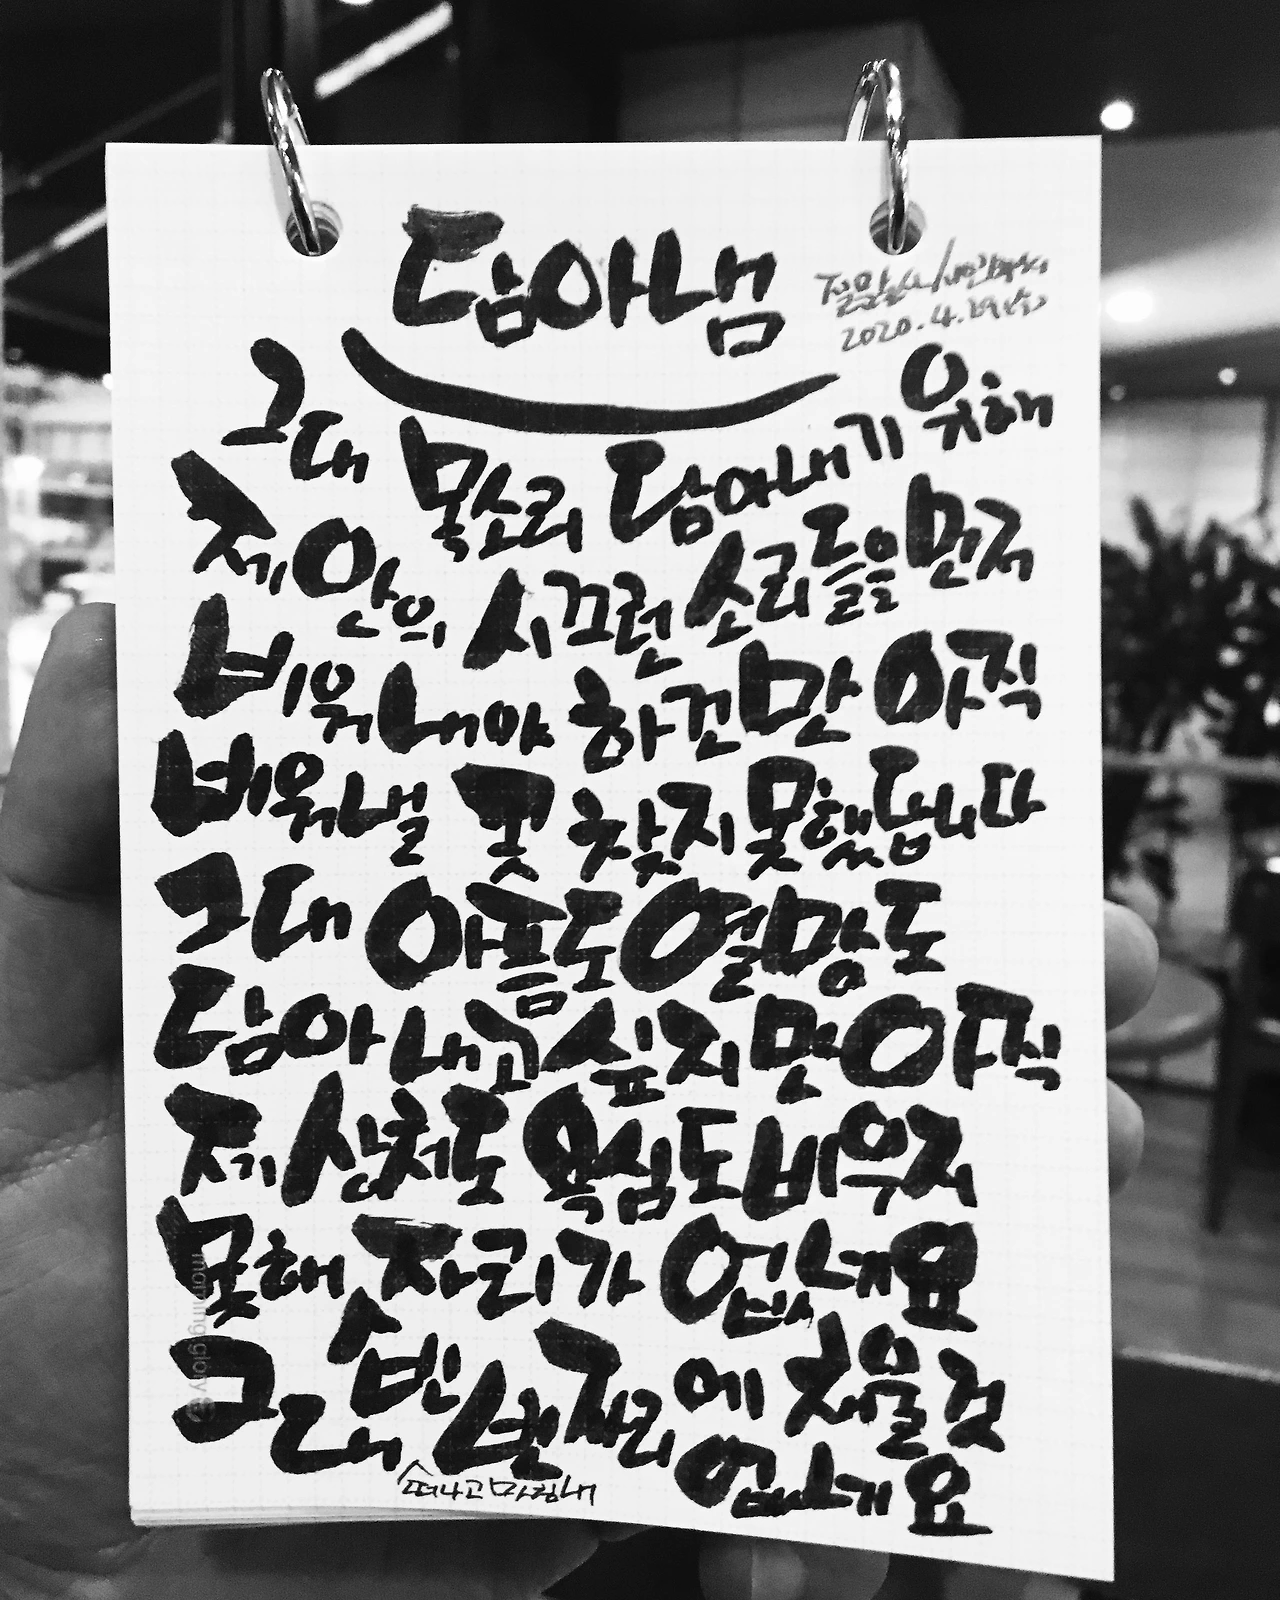 담아냄
2020.4.29(수)
그대 목소리 담아내기 위해
제 안의 시끄런 소리들을 먼저
비워내야 하건만 아직
비워낼 곳 찾지 못했답니다
그대 아픔도 열망도
담아내고 싶지만 아직
제 상처도 욕심도 비우지
못해 자리가 없네요
그래 빈 자리에 채울 것
없네요
떠나고
morning glory